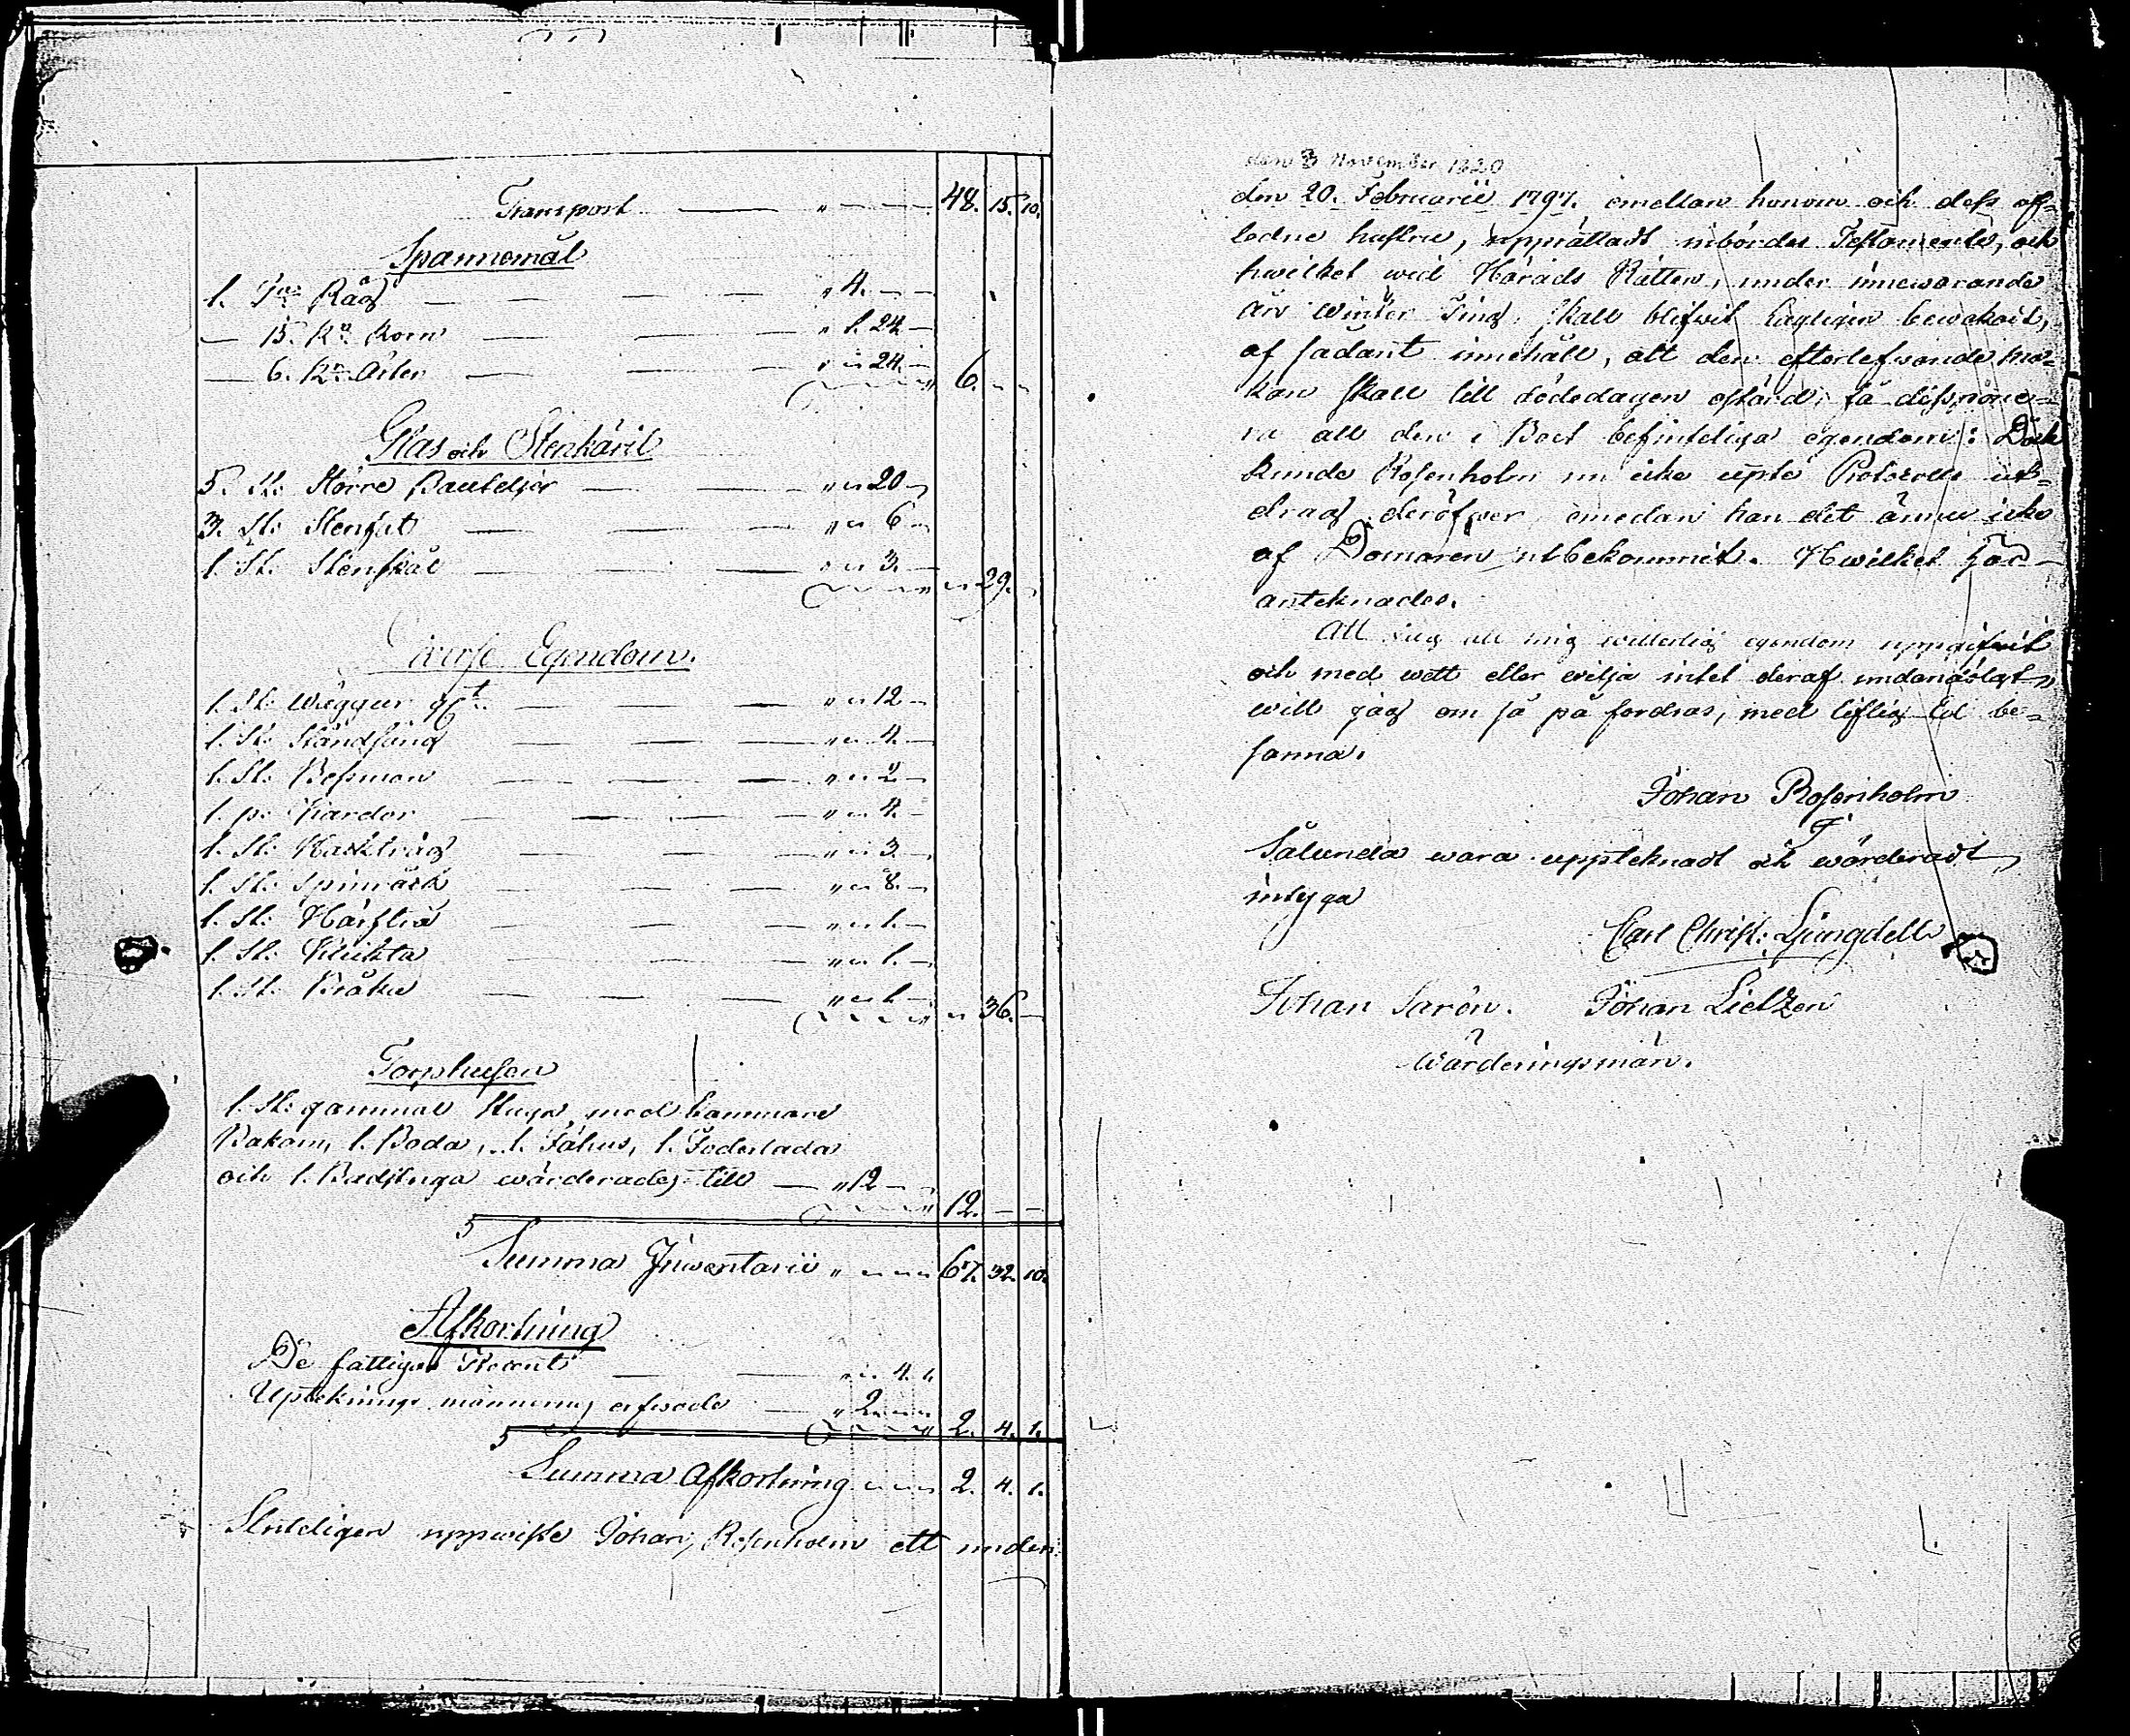 Transport — „ — 48. 15. 10.
Spannemål
1. Tna Råg — „ 4. — —
— 15. Kr Korn — „ 1. 24 —
— 6. Kr Ärter — „ „ 24. —
6. „ „
Glas och Stenkäril
5. St: Större Bauteljer — „ „ 20 —
3. St: Stenfat — „ „ 6 —
1. St: Stenskål — „ „ 3. —
„ 29. „
Diverse Egendom.
1. St: Väggur — „ „ 12 —
1. St: Ståndsäng — „ „ 4. —
1. St: Besman — „ „ 2 —
1. pr Kardor — „ „ 4. —
1. St: Baktråg — „ „ 3. —
1. St: Spinråck — „ „ 8. —
1. St: — „ „ 1. —
1. St: Klukta — „ „ 1. —
1. St: Bråka — „ „ 1. —
„ 36. —
Torphusen
1. St: gammal Stuga med Cammare
Bakom, 1. Boda, 1. Fähus, 1. Foderlada
och 1. Badstuga wärderades till — „ 12 —
12. — —
Summa Inventarii „ „ „ „ 67. 32. 10.
Afkortning
De fattigas Procent — „ „ 4. 1.
Uptekningsmännernas arfwode — „ 2 „ „
2. 4. 1.
Summa Afkortning „ „ „ 2. 4. 1.
Sluteligen uppwiste Johan Rosenholm ett under
den 3 November 1820
den 20. Februarii 1797. emellan honom och dess af-
ledne hustru, upprättadt inbördes Testamente, och
hwilket wid Härads Rätten, under innewarande
års Winter Ting, skall blifwit lagligen bewakat,
af sådant innehåll, att den efterlefwande ma-
kan skall till dödedagen ostörd, få dispone-
ra all den i Boet befinteliga egendom: Dock
kunde Rosenholm nu icke upte Protocolls ut-
drag deröfwer, emedan han det ännu icke
af Domaren utbekommit. Hwilket här
anteknades.
Att jag all mig witterlig egendom uppgifwit
och med wett eller wilja intet deraf undandölgt,
will jag om så på fordras, med liflig Ed be-
sanna.
Johan Rosenholm
Sålunda wara uppteknadt och wärderadt,
intyga
Carl Christ: Ljungdell
Johan Sarén. Johan Lietzen
Wärderingsmän.